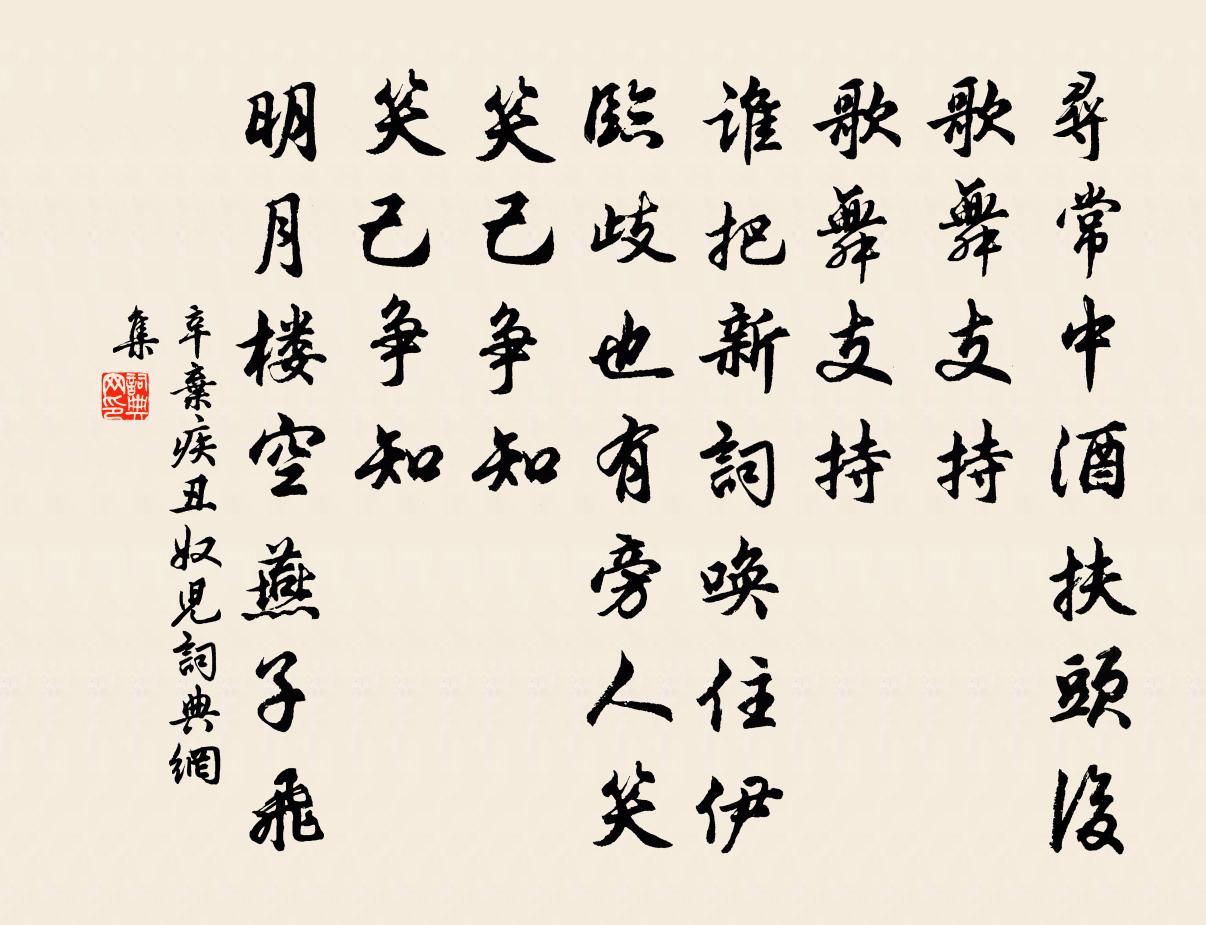 尋常中酒扶頭後
歌舞支持
歌舞支持
谁把新詞唤住伊
臨歧也有旁人笑
笑己争知
笑己争知
明月楼空燕子飛
辛棄疾丑奴児詞典網
集
詞典网印